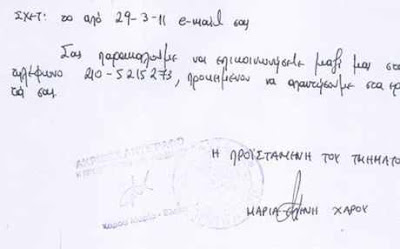 ΣΧΕΤ: το από 29-3-11 e-mail σας
Σας παρακαλούμε να επικοινωνήσετε μαζί μας στο
τηλέφωνο 210-5215273, προκειμένου να απαντήσουμε στα
τά σας.
ΑΚΡΙΒΕΣ ΑΝΤΙΓΡΑΦΟ
Η ΠΡΟΪΣΤΑΜΕΝΗ ΤΟΥ ΤΜΗΜΑΤΟΣ
ΜΑΡΙΑ ΕΛΕΝΗ ΧΑΡΟΥ